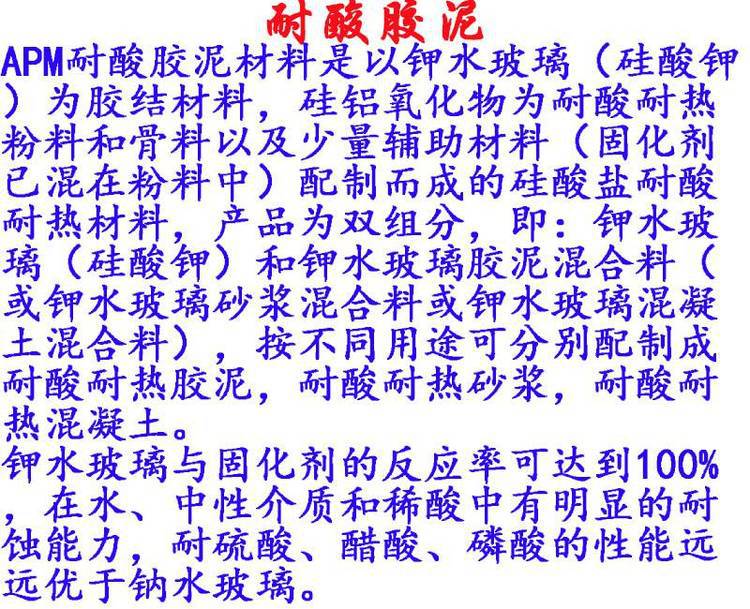 耐酸胶泥
APM耐酸胶泥材料是以钾水玻璃（硅酸钾
）为胶结材料，硅铝氧化物为耐酸耐热
粉料和骨料以及少量辅助材料（固化剂
已混在粉料中）配制而成的硅酸盐耐酸
耐热材料，产品为双组分，即：钾水玻
璃（硅酸钾）和钾水玻璃胶泥混合料（
或钾水玻璃砂浆混合料或钾水玻璃混凝
土混合料），按不同用途可分别配制成
耐酸耐热胶泥，耐酸耐热砂浆，耐酸耐
热混凝土。
钾水玻璃与固化剂的反应率可达到100%
，在水、中性介质和稀酸中有明显的耐
蚀能力，耐硫酸、醋酸、磷酸的性能远
远优于钠水玻璃。